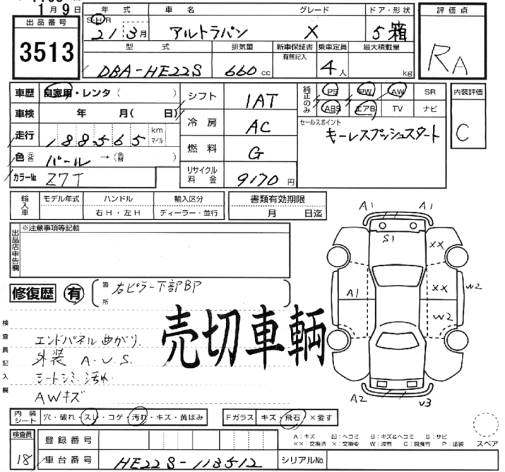 1月9日
出品番号
3513
年式 車名 グレード ドア・形状
S・H・R
21年3月 アルトラパン X 5箱
評価点
RA
型式 排気量 新車保証書 乗車定員 最大積載量
有無記入
DBA-HE22S 660cc 4人 kg
車歴 自家用・レンタ ( )
車検 年 月(日)
走行 188565 km マイル
色 パール → ( )
カラーNo Z7T
シフト 1AT
冷房 AC
燃料 G
リサイクル料金 9170円
純正のみ PS PW AW SR
ABS エアB TV ナビ
内装評価
C
セールスポイント
キーレスプッシュスタート
輸入車 モデル年式 ハンドル 輸入区分
右H・左H ディーラー・並行
書類有効期限
月 日迄
出品店申告欄
※注意事項等記載
修復歴 有 箇所 右ピラー下部BP
検査員記入欄
エンドパネル曲がり
外装 A.U.S.
シートシミ汚れ
AWキズ
売切車輌
A1 A1
S1 XX
A1 XX W2
W2
A2 U3
内装シート 穴・破れ・スレ・コゲ 汚れ・キズ・黄ばみ
Fガラス キズ・飛石 ×要す
検査員
18
登録番号
車台番号 HE22S-113512
シリアルNo.
スペア